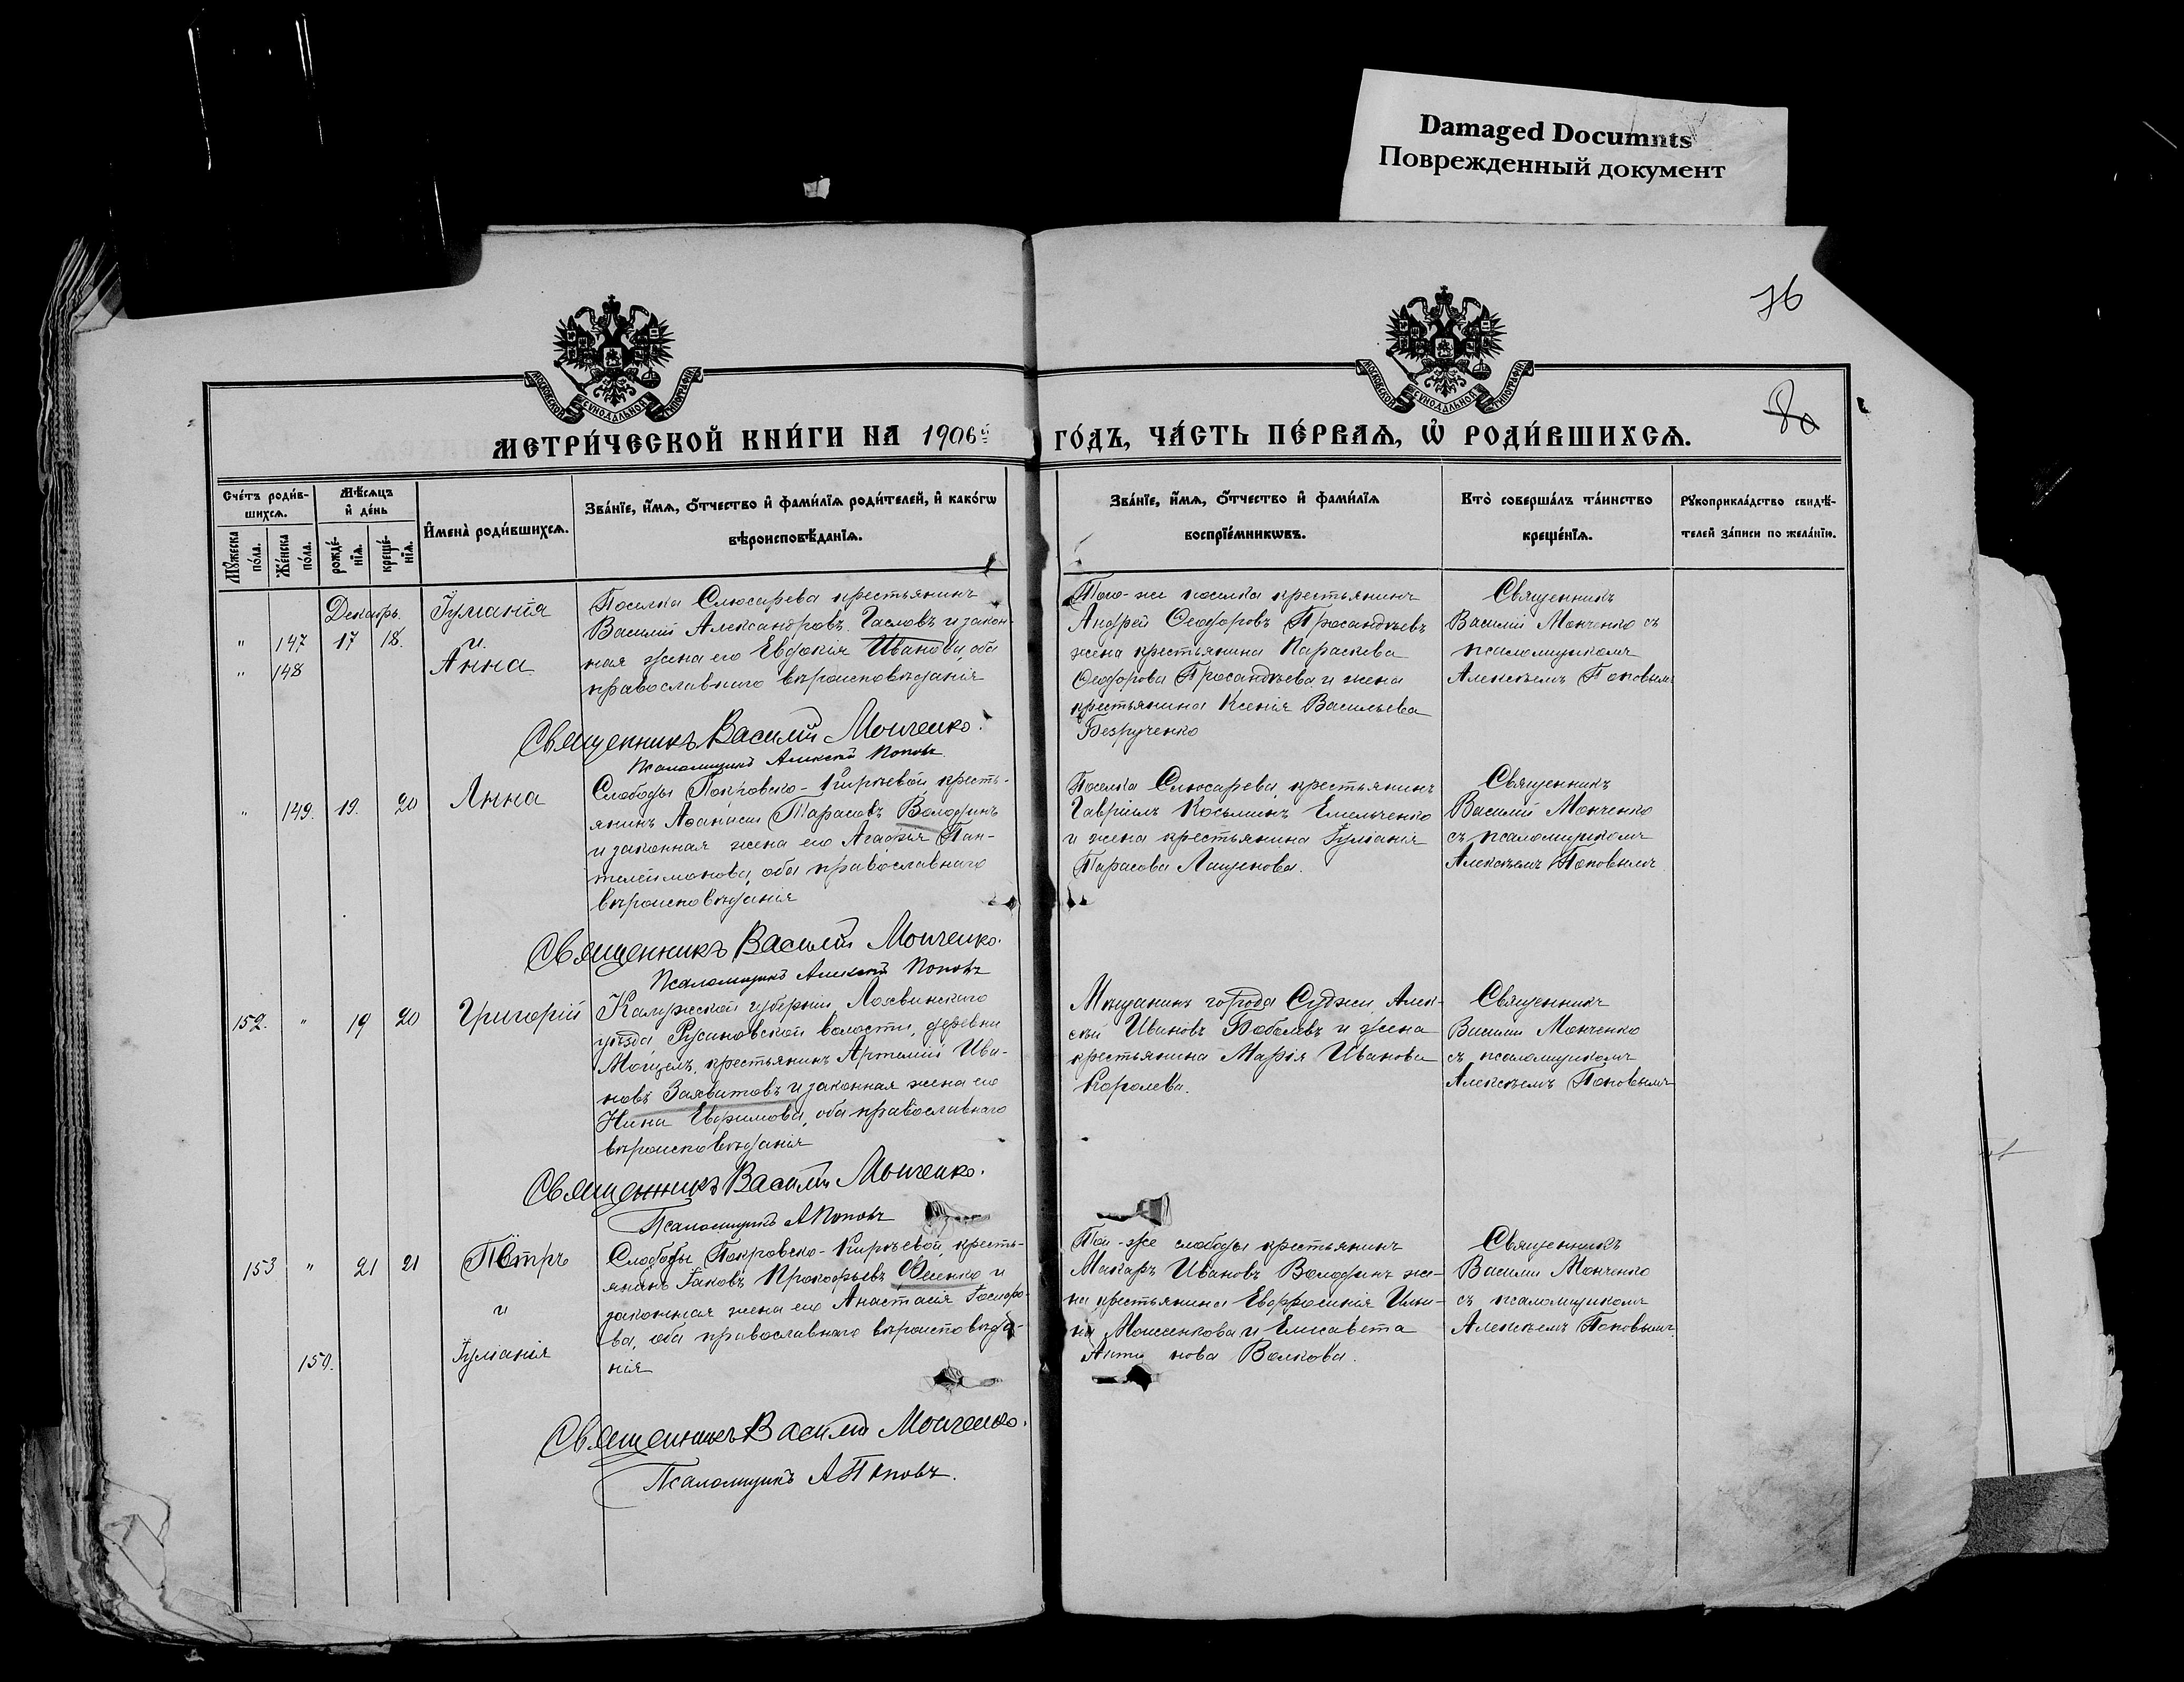 Damaged Documnts
Поврежденный документ
76
80
МОСКОВСКОЙ СѴНОДАЛЬНОЙ ТИПОГРАФІИ
МОСКОВСКОЙ СѴНОДАЛЬНОЙ ТИПОГРАФІИ
МЕТРИ́ЧЕСКОЙ КНИ́ГИ НА 1906й ГО́ДЪ, ЧА́СТЬ ПЕ́РВАѦ, Ѡ РОДИ́ВШИХСѦ.
Сче́тъ роди́вшихсѧ.
Мꙋ́жеска по́ла.
Же́нска по́ла.
Мѣ́сѧцъ и҆ де́нь
рожде́нїѧ.
креще́нїѧ.
И҆мена̀ роди́вшихсѧ.
Зва́нїе, и҆́мѧ, ѻ҆́тчество и҆ фами́лїѧ роди́телей, и҆ како́гѡ
вѣроисповѣ́данїѧ.
Зва́нїе, и҆́мѧ, ѻ҆́тчество и҆ фами́лїѧ
воспрїе́мникѡвъ.
Кто̀ соверша́лъ та́инство
креще́нїѧ.
Рꙋкоприкла́дство свидѣ́-
телей за́писи по жела́нїю.
Декабрь
" 147 17 18.
" 148
Іуліанія
и
Анна
Поселка Слюсарева крестьянинъ
Василій Александровъ Гасловъ и закон-
ная жена его Евдокія Иванова, оба
православнаго вѣроисповѣданія
Священникъ Василій Монченко.
Псаломщикъ Алексѣй Поповъ
Того-же поселка крестьянинъ
Андрей Ѳеодоровъ
жена крестьянина Параскева
Ѳеодорова и жена
крестьянина Ксенія Васильева
Безрученко
Священникъ
Василій Монченко съ
псаломщикомъ
Алексѣемъ Поповымъ
" 149. 19. 20
Анна
Слободы Покровско-Кирѣевой, кресть-
янинъ Аѳанасій Тарасовъ Володинъ
и законная жена его Агаѳія Пан-
телеимонова, оба православнаго
вѣроисповѣданія
Священникъ Василій Монченко.
Псаломщикъ Алексѣй Поповъ
Поселка Слюсарева, крестьянинъ
Гавріилъ Косьминъ Емельченко
и жена крестьянина Іуліанія
Тарасова Лащенова.
Священникъ
Василій Монченко
съ псаломщикомъ
Алексѣемъ Поповымъ
152. " 19 20
Григорій
Калужской губерніи, Лихвинскаго
уѣзда Русановской волости, деревни
крестьянинъ Артемій Ива-
новъ Заявитовъ и законная жена его
Нина Евфимова, оба православнаго
вѣроисповѣданія
Священникъ Василій Монченко.
Псаломщикъ А Поповъ
Мѣщанинъ города Суджи, Алек-
сѣй Ивановъ Боболевъ и жена
крестьянина Марія Иванова
Королева.
Священникъ
Василій Монченко
съ псаломщикомъ
Алексѣемъ Поповымъ
153 " 21 21
Петръ
и
150.
Іуліанія
Слободы Покровско-Кирѣевой, кресть-
янинъ Іаковъ Прокофьевъ Фесенко и
законная жена его Анастасія
ва, оба православнаго вѣроисповѣда-
нія
Священникъ Василій Монченко.
Псаломщикъ А Поповъ.
Той-же слободы крестьянинъ
Макаръ Ивановъ Володинъ же-
на крестьянина Евфросинія Ильи-
на Моисенкова и Елисавета
нова Волкова.
Священникъ
Василій Монченко
съ псаломщикомъ
Алексѣемъ Поповымъ